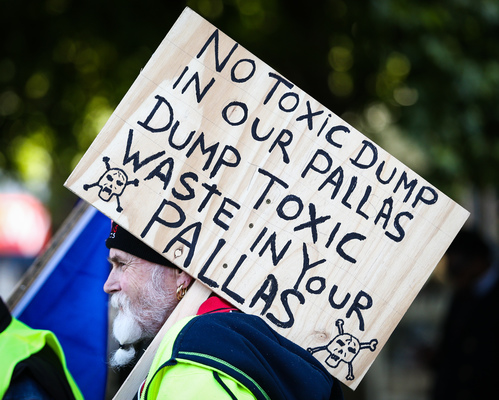 NO TOXIC DUMP
IN OUR PALLAS
DUMP TOXIC
WASTE IN YOUR
PALLAS